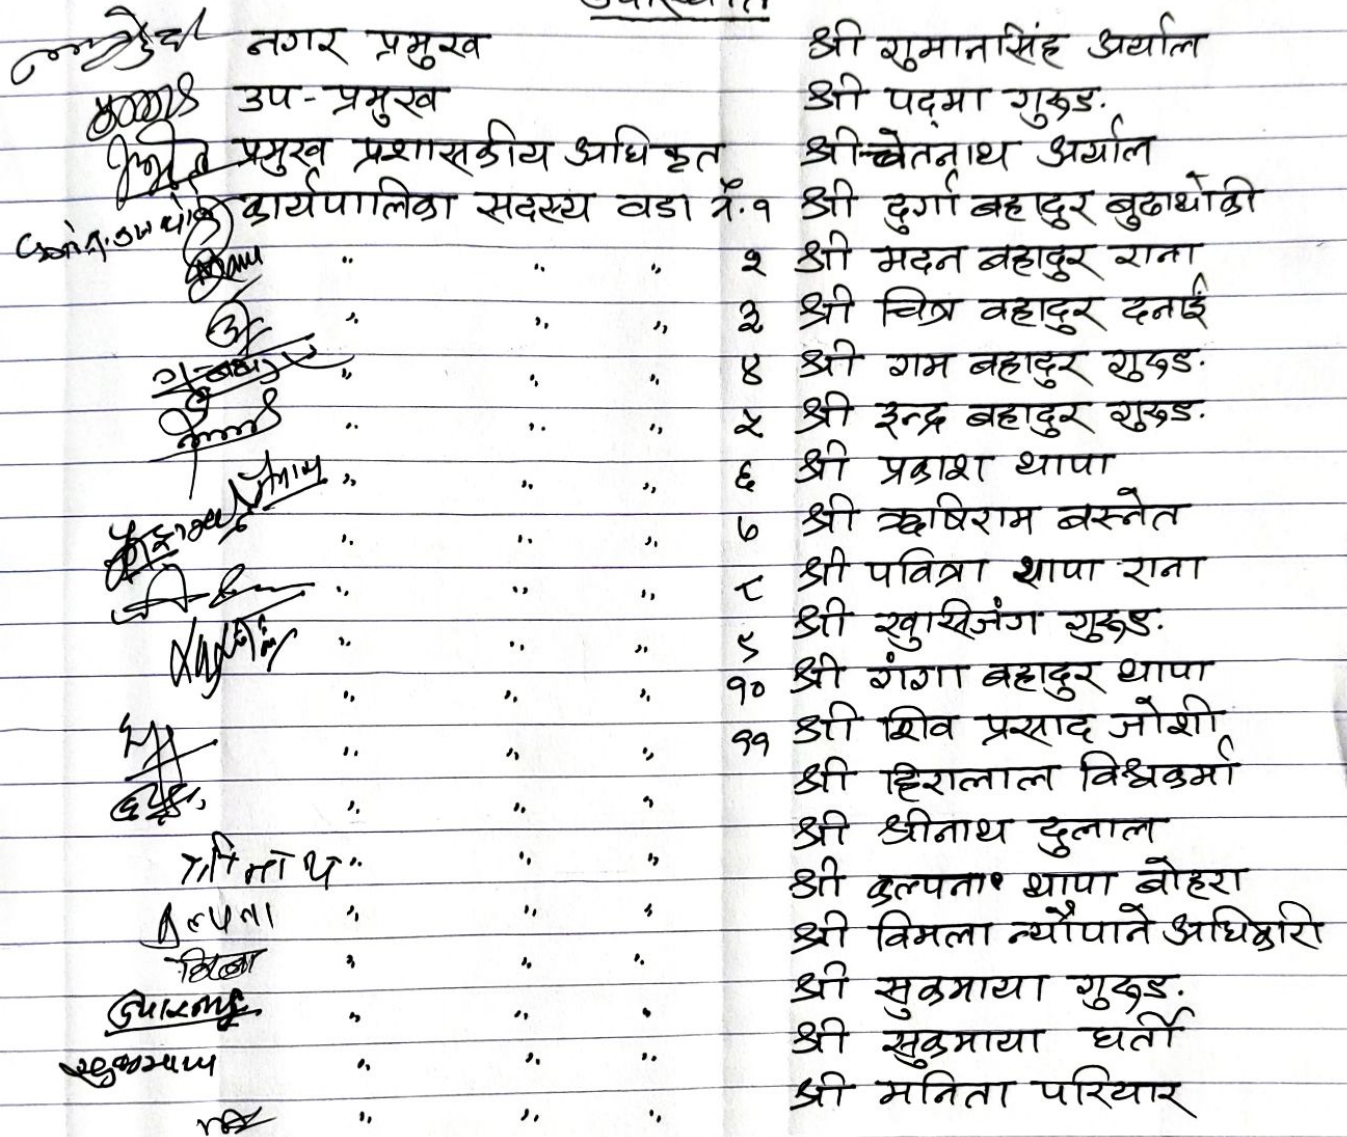 उपस्थिति
नगर प्रमुख श्री गुमानसिंह अर्याल
उप-प्रमुख श्री पद्मा गुरुङ.
प्रमुख प्रशासकीय अधिकृत श्री चेतनाथ अर्याल
कार्यपालिका सदस्य वडा नं. १ श्री दुर्गा बहादुर बुढाथोकी
" " " २ श्री मदन बहादुर राना
" " " ३ श्री चित्र वहादुर दनाई
" " " ४ श्री राम बहादुर गुरुङ.
" " " ५ श्री इन्द्र बहादुर गुरुङ.
" " " ६ श्री प्रकाश थापा
" " " ७ श्री ऋषिराम बस्नेत
" " " ८ श्री पवित्रा थापा राना
" " " ९ श्री खुसिजंग गुरुङ.
" " " १० श्री गंगा बहादुर थापा
" " " ११ श्री शिव प्रसाद जोशी
" " " श्री हिरालाल विश्वकर्मा
श्रीनाथ " " " श्री श्रीनाथ दुलाल
कल्पना " " " श्री कल्पना थापा बोहरा
" " " श्री विमला न्यौपाने अधिकारी
" " " श्री सुकमाया गुरुङ.
सुकमाया " " " श्री सुकमाया घर्ती
" " " श्री मनिता परियार